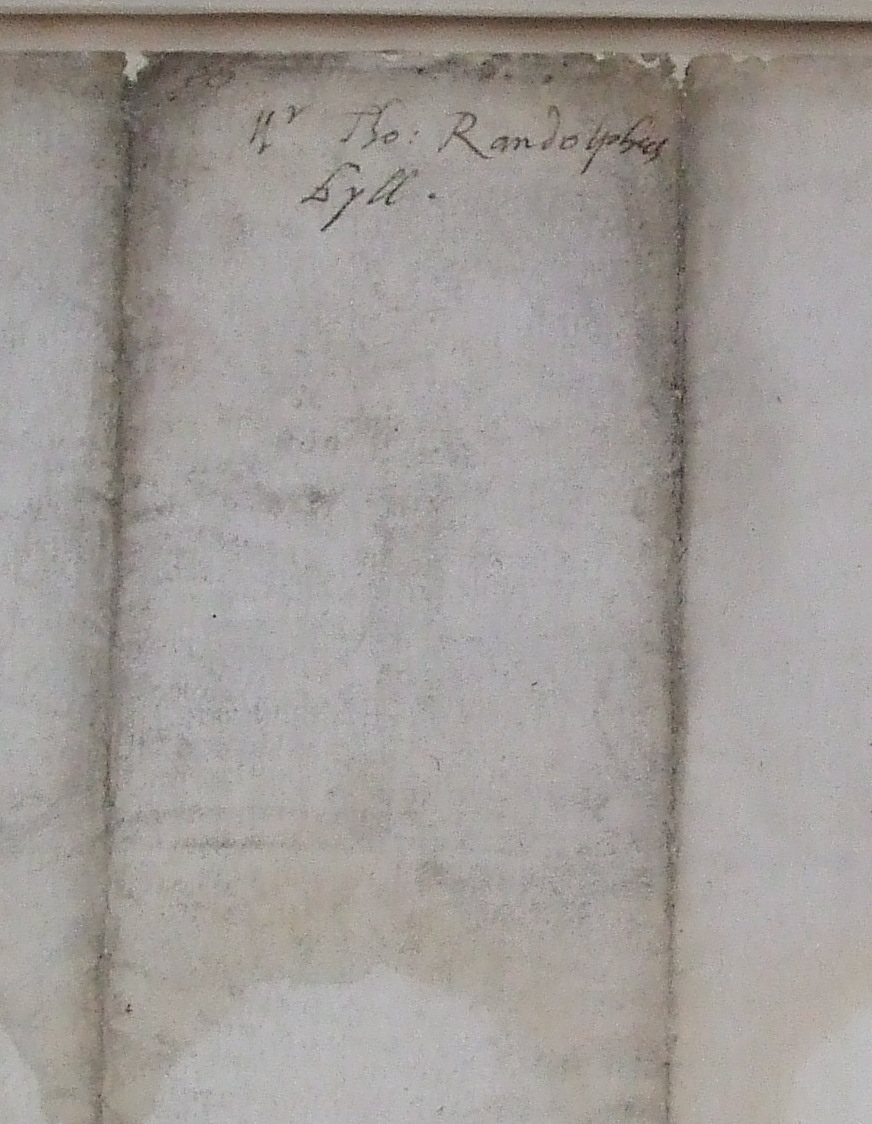 Mr Tho: Randolphes
byll.